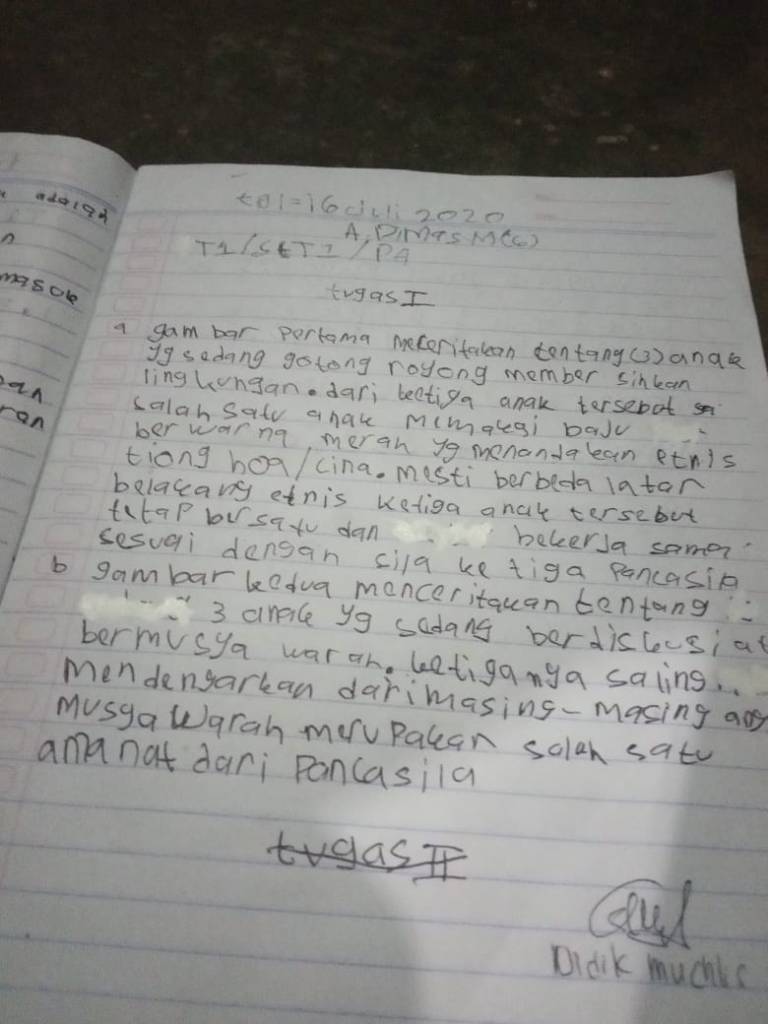 adalah
n
masok
an
ran
tgl=16 juli 2020
A, DIMas M(6)
T1/St T1/PA
tugas I
a gambar pertama menceritakan tentang (3) anak
yg sedang gotong royong member sihkan
lingkungan. dari ketiga anak tersebut sa
salah satu anak memakai baju
berwarna merah yg menandakan etnis
tiong hoa/cina. mesti berbeda latar
belakang etnis ketiga anak tersebut
tetap bersatu dan bekerja sama
sesuai dengan sila ke tiga pancasila
b gambar kedua menceritakan tentang
3 anak yg sedang berdiskusi at
bermusya warah. ketiganya saling..
mendengarkan dari masing-masing ang
musyawarah merupakan salah satu
amanat dari pancasila
tugas II
Didik muchlis